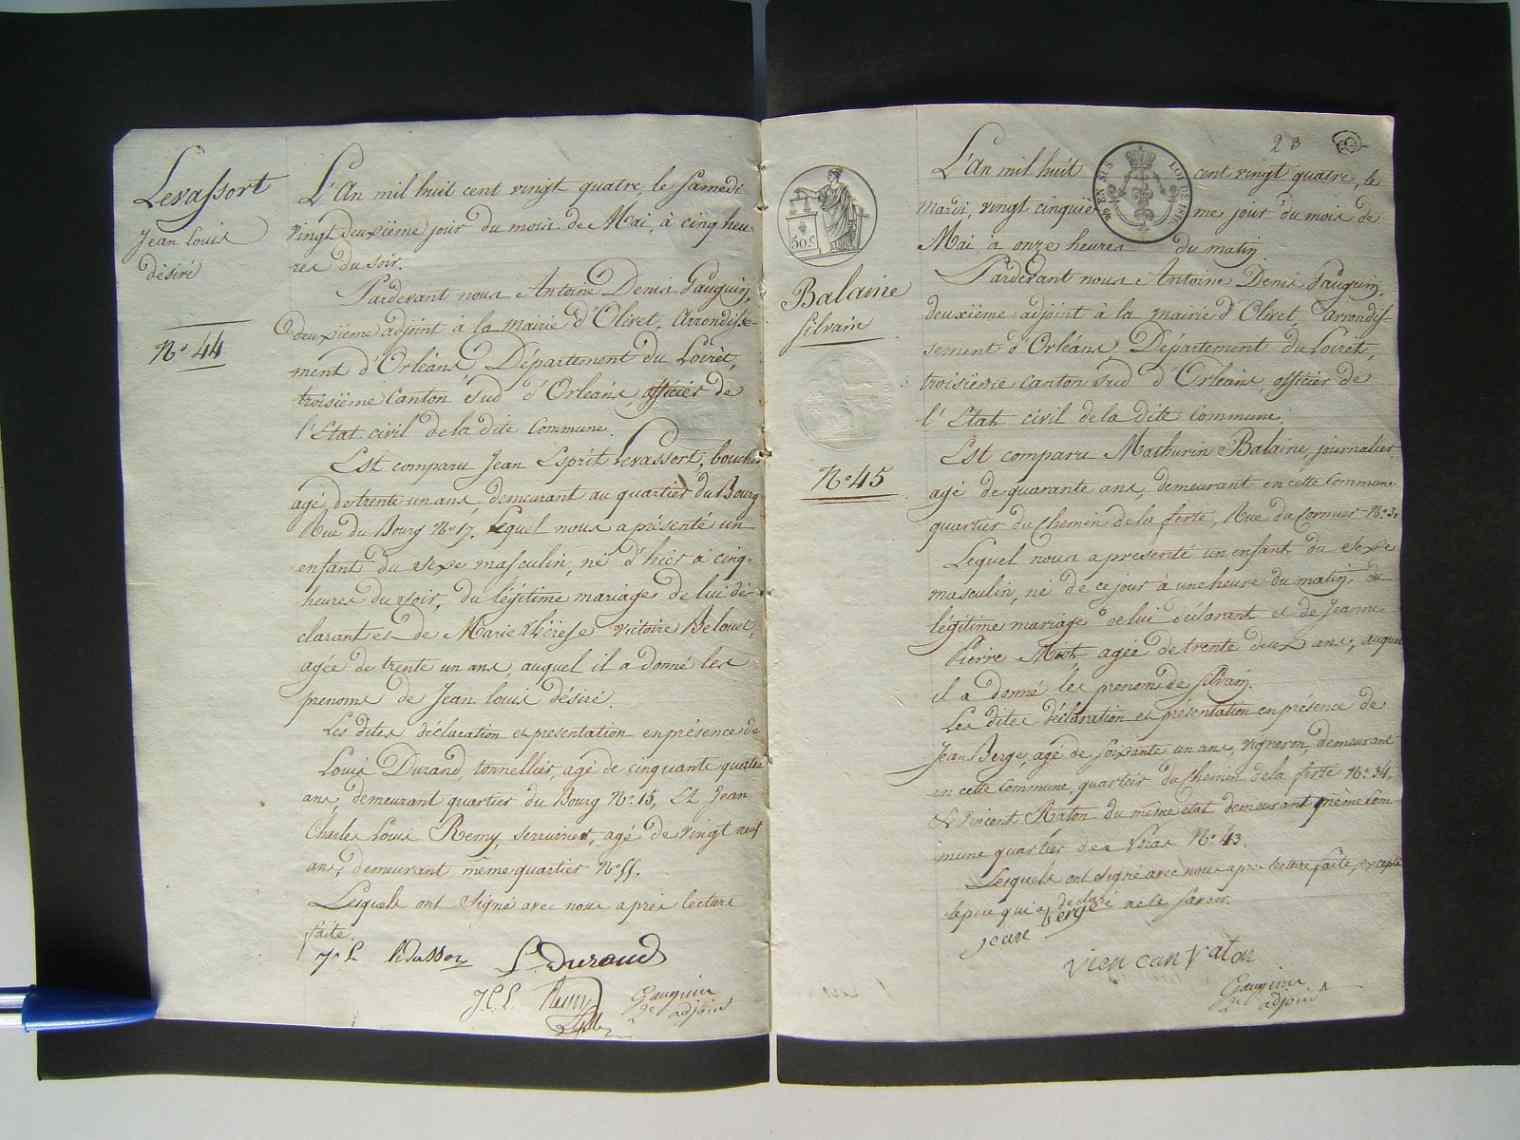 Levassort
Jean Louis
désiré
N° 44
L'An mil huit cent vingt quatre, le Samedi
vingt deuxième jour du mois de Mai, à cinq heu-
res du soir.
Pardevant nous Antoine Denis Gauguin,
deuxième adjoint à la mairie d'Olivet, Arrondisse-
ment d'Orléans, Département du Loiret,
troisième Canton Sud d'Orléans, officier de
l'Etat civil de la dite Commune.
Est comparu Jean Esprit Levassort, boucher
agé de trente un ans, demeurant au quartier du Bourg
Rue du Bourg N° 17. Lequel nous a présenté un
enfant du sexe masculin, né d'hier à cinq
heures du soir, du légitime mariage de lui dé-
clarant et de Marie Thérèse Victoire Belouet,
agée de trente un ans, auquel il a donné les
prenoms de Jean Louis désiré.
Les dites déclaration et presentation en présence de
Louis Durand, tonnellier, agé de cinquante quatre
ans, demeurant quartier du Bourg N° 15, Et Jean
Charles Louis Remy, serrurier, agé de vingt neuf
ans, demeurant même quartier N° 55.
Lesquels ont Signé avec nous après lecture
faite.
L. Durand
J.C.L. Remy
Gauguin
adjoint
23
50 c
Balaine
Silvain
N° 45
L'An mil huit cent vingt quatre, le
mardi, vingt cinquième jour du mois de
Mai à onze heures du matin.
Pardevant nous Antoine Denis Gauguin,
deuxième adjoint à la mairie d'Olivet, arrondis-
sement d'Orléans, Département du Loiret,
troisième canton sud d'Orléans, officier de
l'Etat civil de la dite commune.
Est comparu Mathurin Balaine, journalier,
agé de quarante ans, demeurant en cette Commune
quartier du Chemin de la ferté, Rue du Cormier N° 3.
Lequel nous a presenté un enfant du sexe
masculin, né de ce jour à une heure du matin, du
légitime mariage de lui déclarant et de Jeanne
Pierre agée de trente deux ans, auquel
il a donné les prenom de Silvain.
Les dites déclaration et présentation en présence de
Jean Berge, agé de soixante un ans, vigneron, demeurant
en cette Commune, quartier du Chemin de la ferté N° 34,
Et Vincent Raton du même état demeurant même Com-
mune quartier des N° 43.
Lesquels ont Signé avec nous après lecture faite, excepté
le père qui a déclaré ne le savoir.
jean berge
Gauguin
adjoint